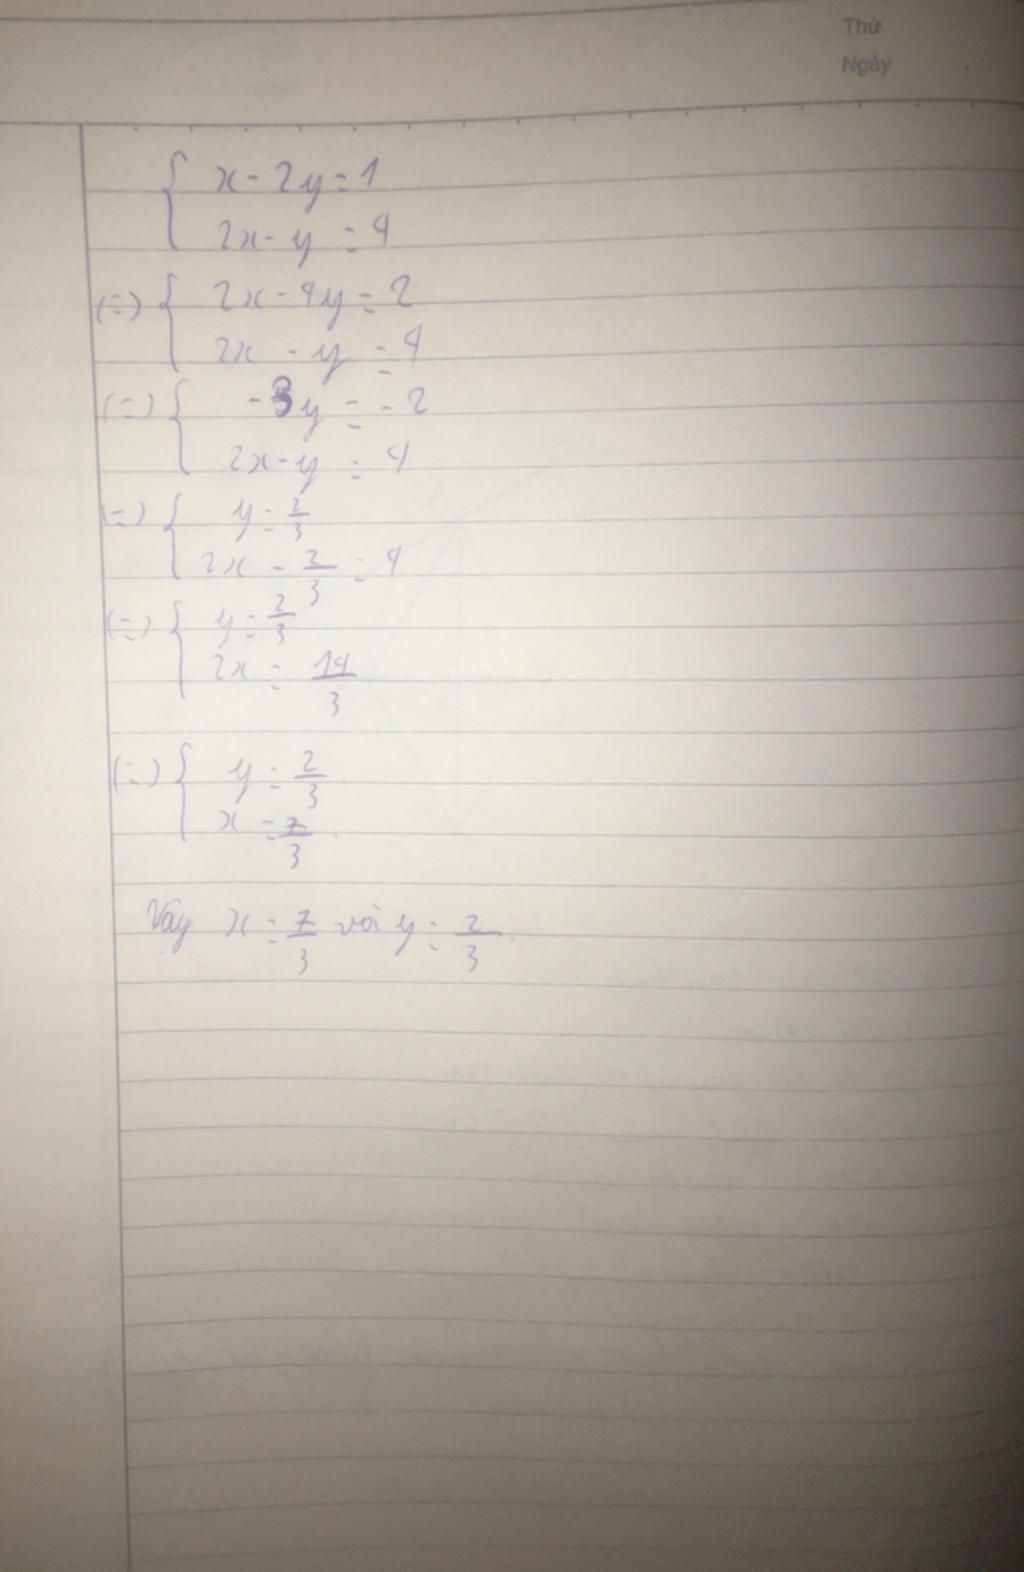 Thứ
Ngày
{ x - 2y = 1
2x - y = 4
(=) { 2x - 4y = 2
2x - y = 4
(=) { -3y = -2
2x - y = 4
(=) { y = 2/3
2x - 2/3 = 4
(=) { y = 2/3
2x = 14/3
(=) { y = 2/3
x = 7/3
Vậy x = 7/3 và y = 2/3.